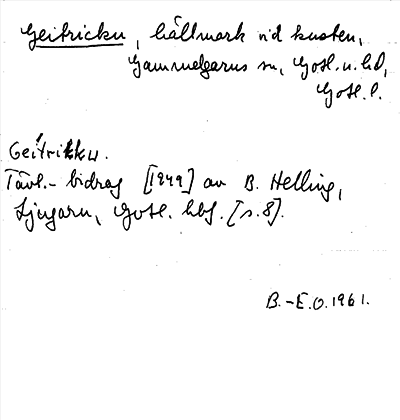 Geitricku, hällmark vid kusten,
Gammelgarns sn, Gotl. n. hd,
Gotl. l.
Geitrikku.
Tävl.-bidrag [1949] av B. Helling,
Ljugarn, Gotl. hbf. [s. 8].
B.-E.O. 1961.